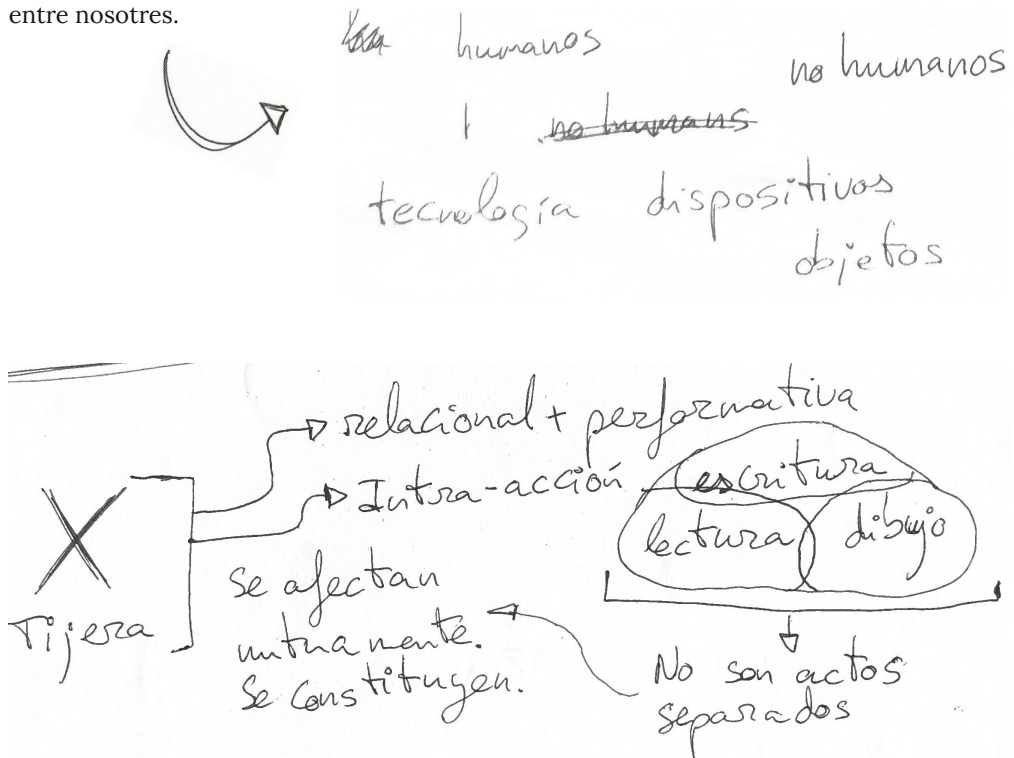 entre nosotres.
humanos
no humanos
no humans
tecnología dispositivos
objetos
relacional + performativa
Intra-acción
escritura
lectura
dibujo
X
Tijera
se afectan
mutuamente.
Se constituyen.
No son actos
separados